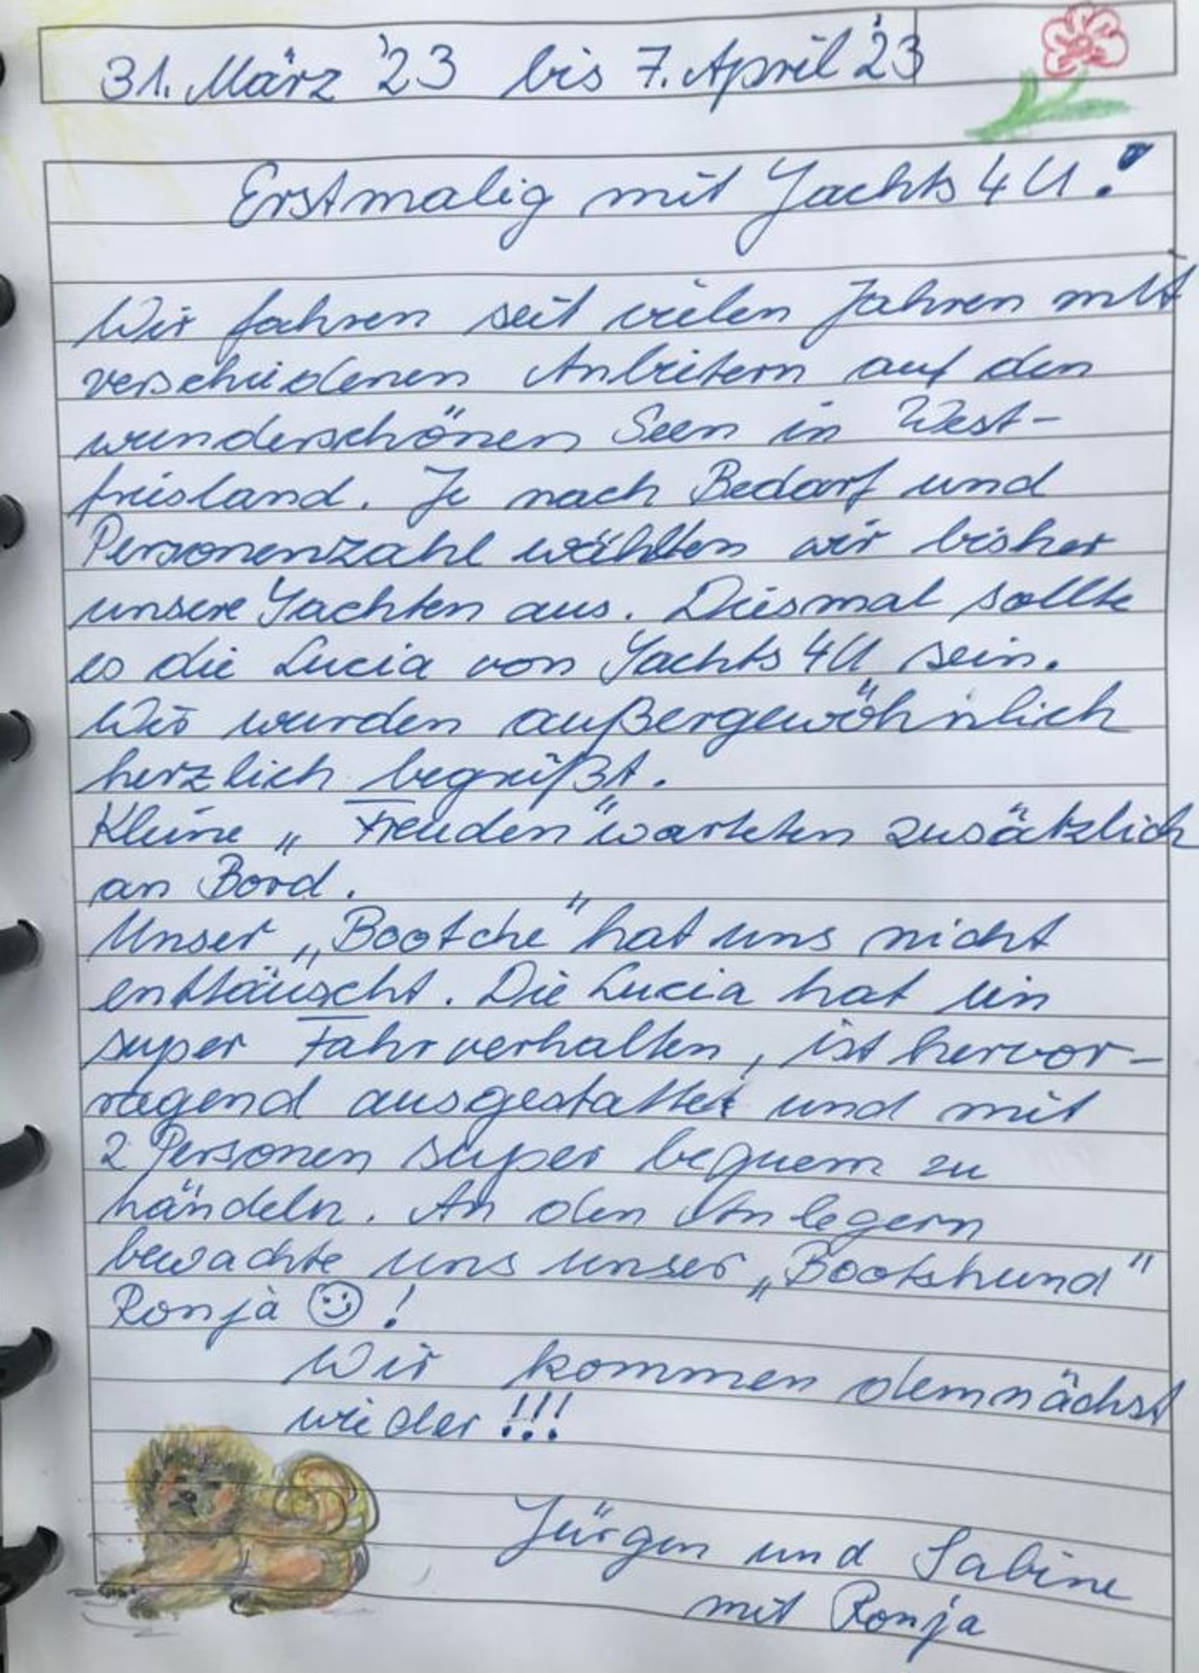 31. März '23 bis 7. April '23
Erstmalig mit Yachts 4 U!
Wir fahren seit vielen Jahren mit
verschiedenen Anbietern auf den
wunderschönen Seen in West-
friesland. Je nach Bedarf und
Personenzahl wählten wir bisher
unsere Yachten aus. Diesmal sollte
es die Lucia von Yachts 4U sein.
Wir wurden außergewöhnlich
herzlich begrüßt.
Kleine „Freuden" warteten zusätzlich
an Bord.
Unser „Bootche" hat uns nicht
enttäuscht. Die Lucia hat ein
super Fahrverhalten, ist hervor-
ragend ausgestattet und mit
2 Personen super bequem zu
händeln. An den Anlegern
bewachte uns unser „Bootshund"
Ronja ☺!
Wir kommen demnächst
wieder!!!
Jürgen und Sabine
mit Ronja